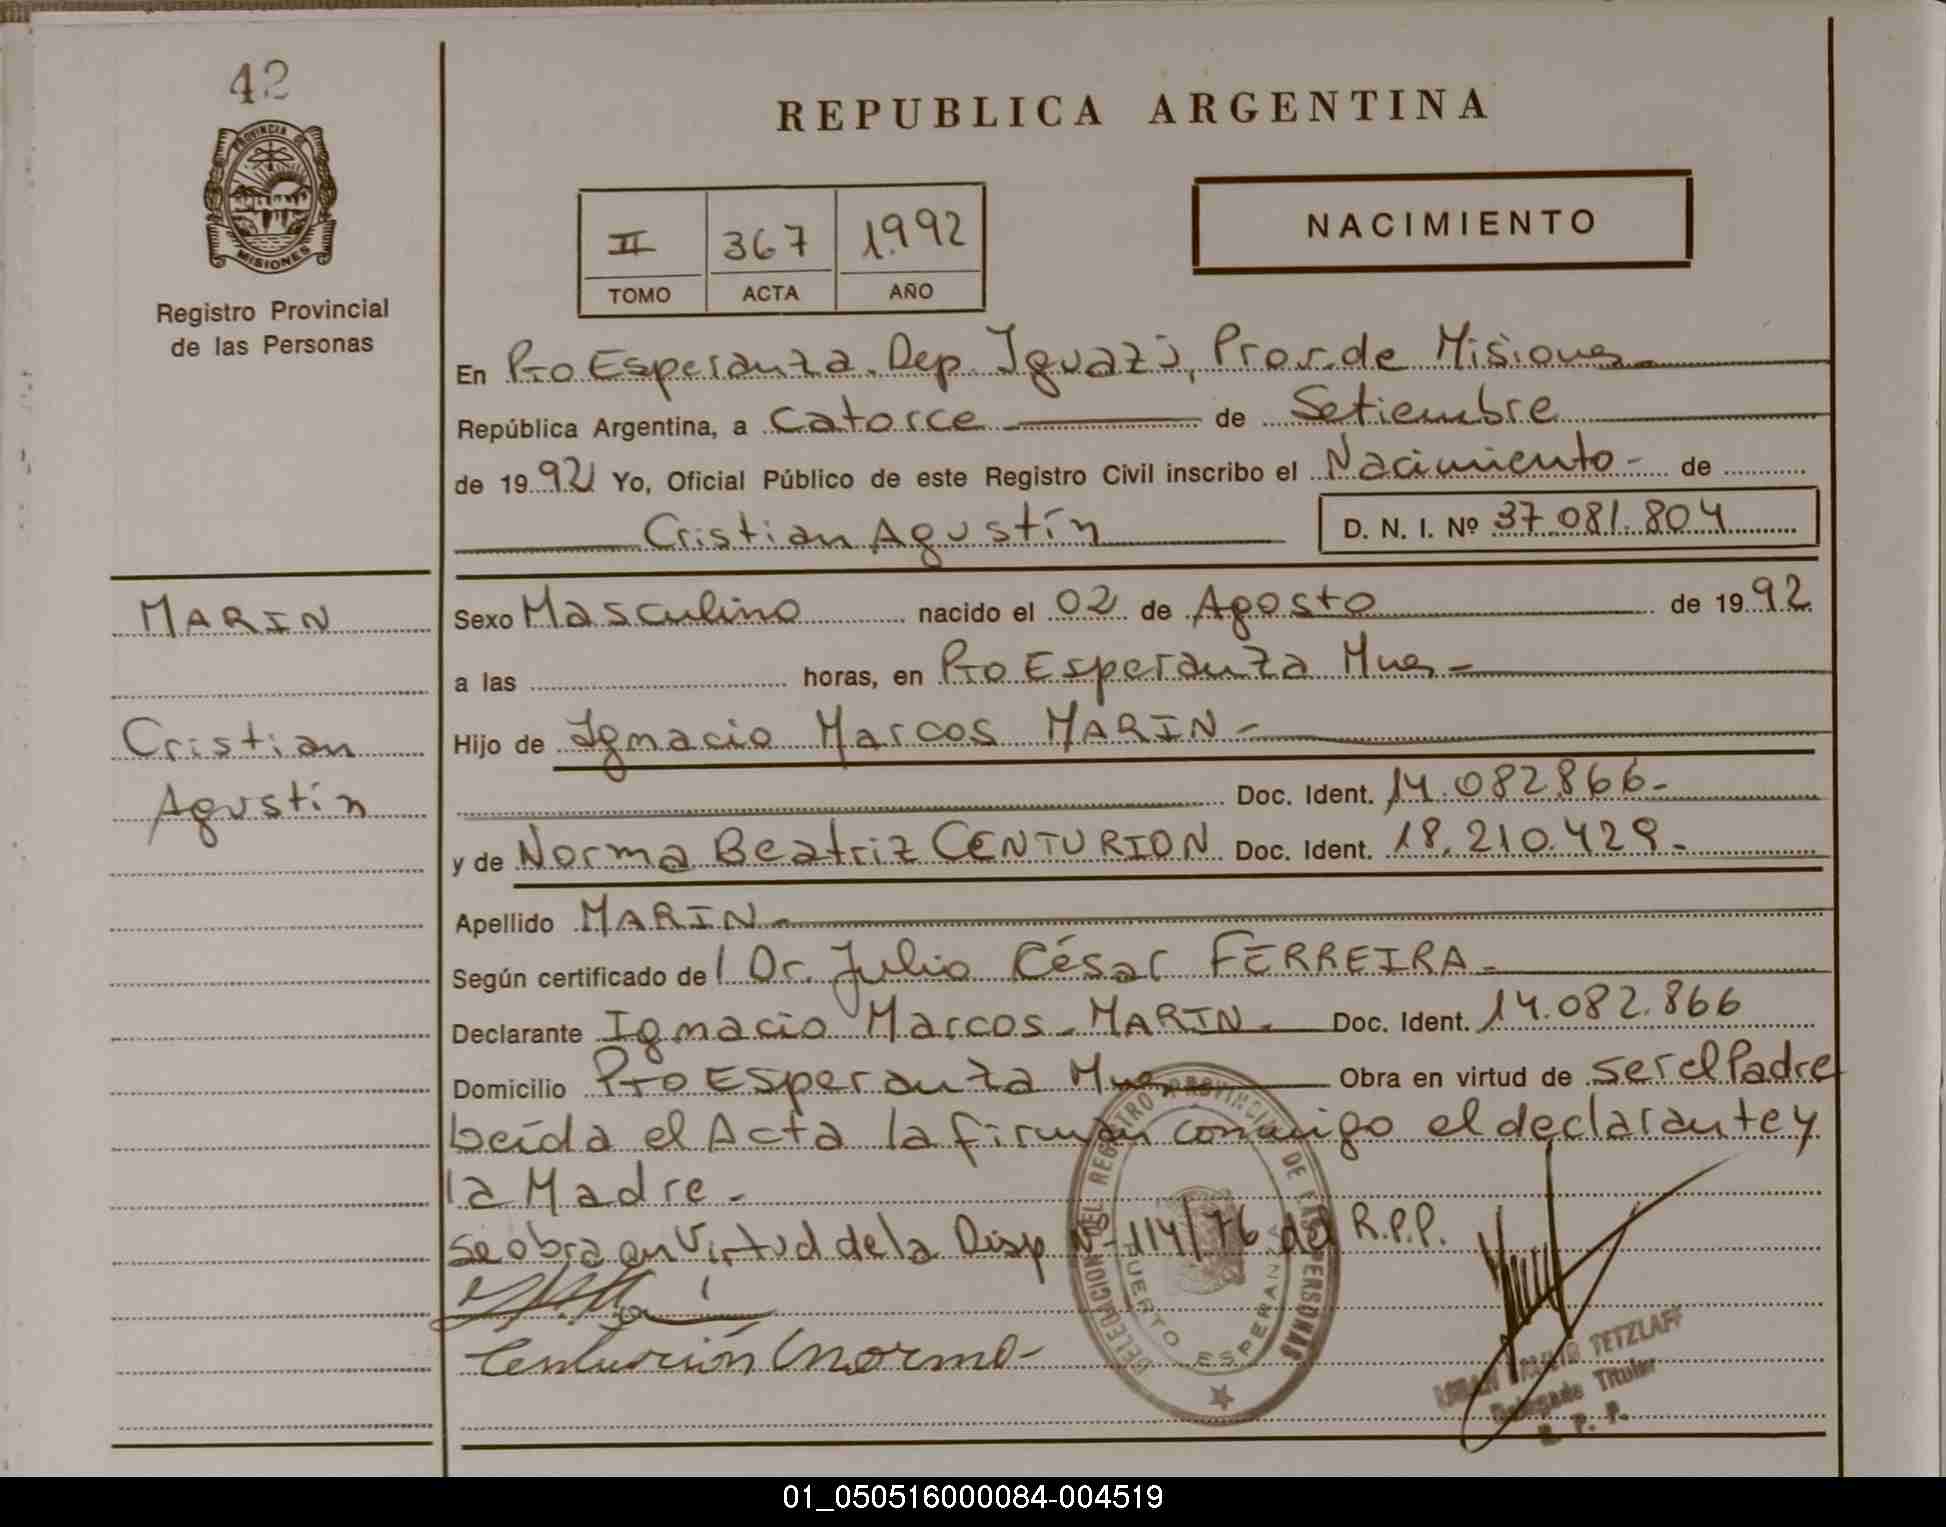 42
PROVINCIA DE
MISIONES
Registro Provincial
de las Personas
REPUBLICA ARGENTINA
II 367 1.992
TOMO ACTA AÑO
NACIMIENTO
En Pto Esperanza. Dep. Iguazú, Prov. de Misiones
República Argentina, a Catorce de Setiembre
de 1992 Yo, Oficial Público de este Registro Civil inscribo el Nacimiento - de
Cristian Agustín D. N. I. Nº 37.081.804
MARIN
Cristian
Agustín
Sexo Masculino nacido el 02 de Agosto de 1992
a las horas, en Pto Esperanza Mnes -
Hijo de Ignacio Marcos MARIN -
Doc. Ident. 14.082.866-
y de Norma Beatriz CENTURION Doc. Ident. 18.210.429.-
Apellido MARIN -
Según certificado del Dr. Julio César FERREIRA -
Declarante Ignacio Marcos - MARIN - Doc. Ident. 14.082.866
Domicilio Pto Esperanza Mnes Obra en virtud de ser el Padre
Leída el Acta la firman conmigo el declarante y
la Madre -
se obra en Virtud de la Disp Nº 114/76 del R.P.P.
Centurión Norma -
DELEGACION DEL REGISTRO PROVINCIAL DE LAS PERSONAS
PUERTO ESPERANZA
TETZLAFF
Delegado Titular
R. P. P.
01_050516000084-004519